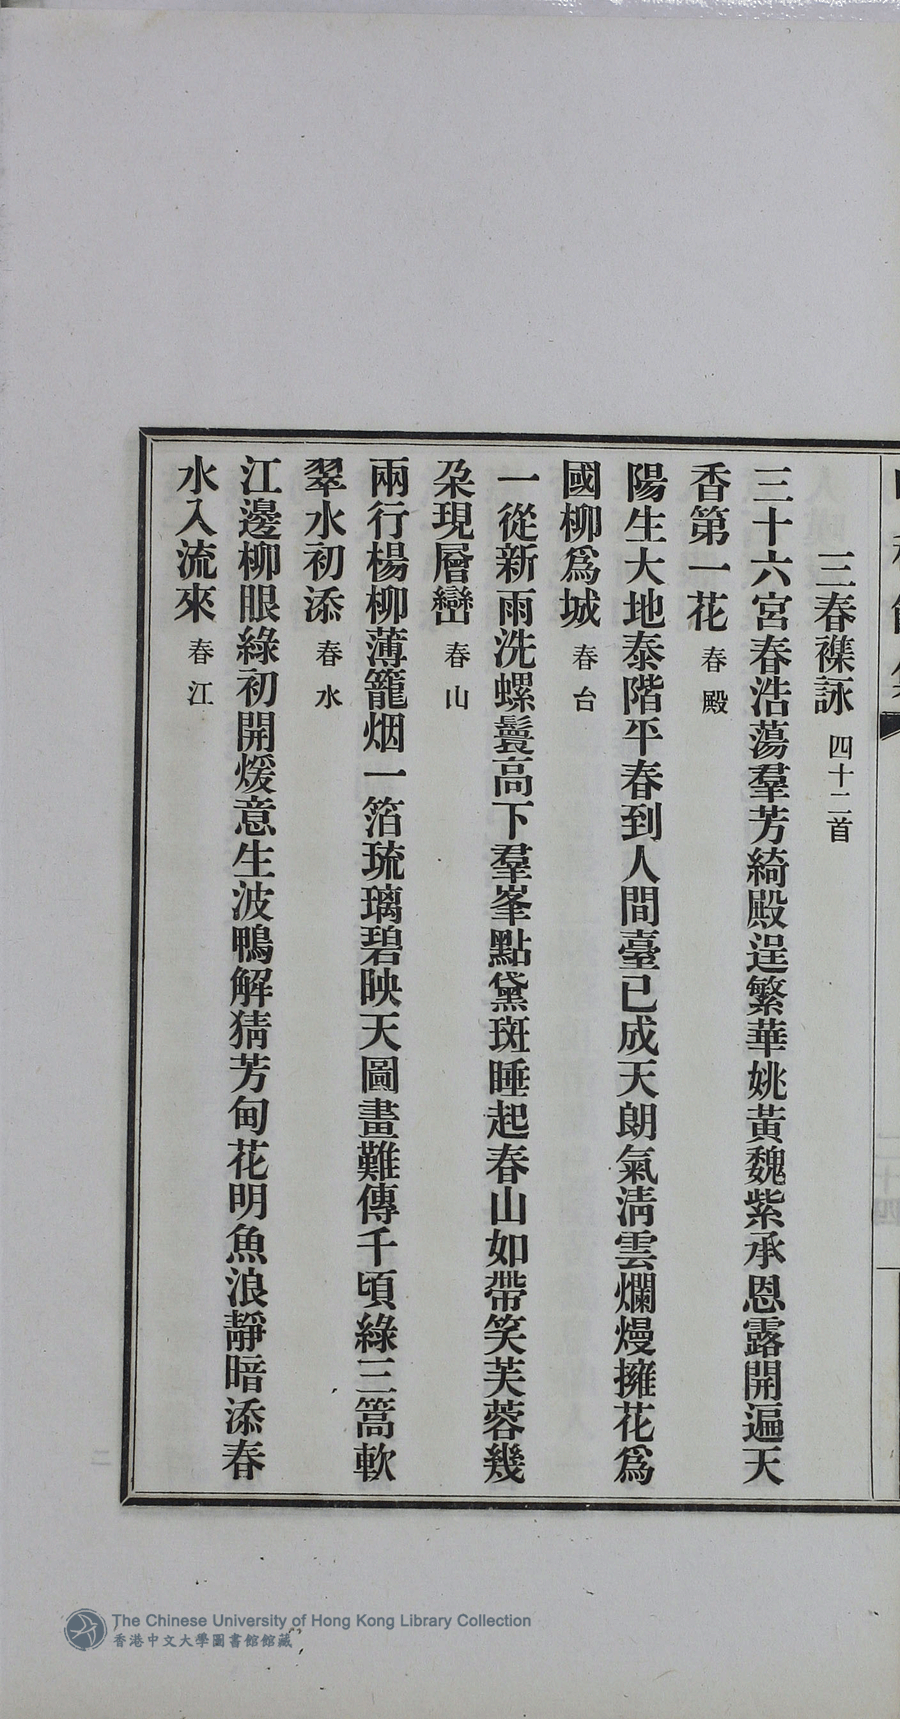 三春襍詠 四十二首
三十六宮春浩蕩羣芳綺殿逞繁華姚黃魏紫承恩露開遍天
香第一花 春殿
陽生大地泰階平春到人間臺已成天朗氣淸雲爛熳擁花爲
國柳爲城 春台
一從新雨洗螺鬟高下羣峯點黛斑睡起春山如帶笑芙蓉幾
朶現層巒 春山
兩行楊柳薄籠烟一箔琉璃碧映天圖畫難傳千頃綠三篙軟
翠水初添 春水
江邊柳眼綠初開煖意生波鴨解猜芳甸花明魚浪靜暗添春
水入流來 春江
The Chinese University of Hong Kong Library Collection
香港中文大學圖書館館藏